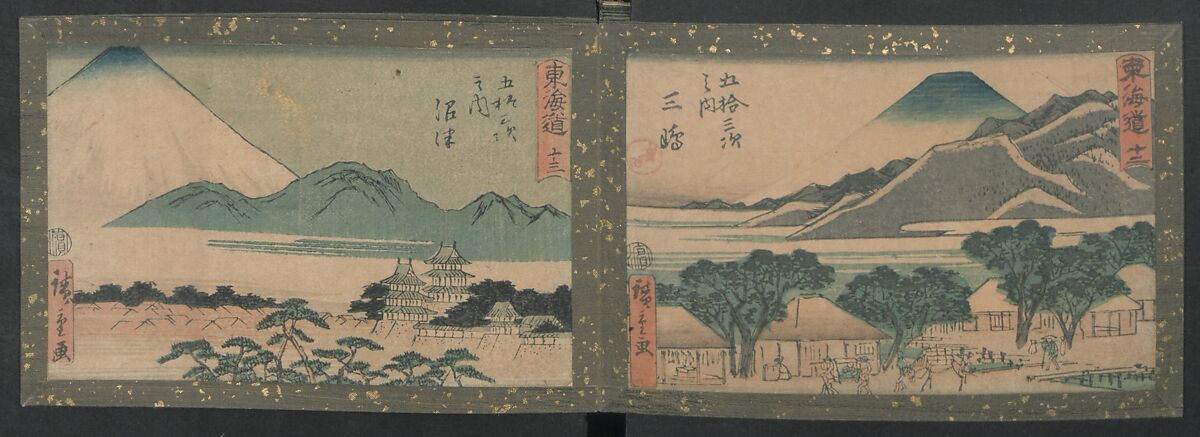 東海道 十二
五拾三次
之内
三嶋
廣重画
東海道 十三
五拾三次
之内
沼津
廣重画